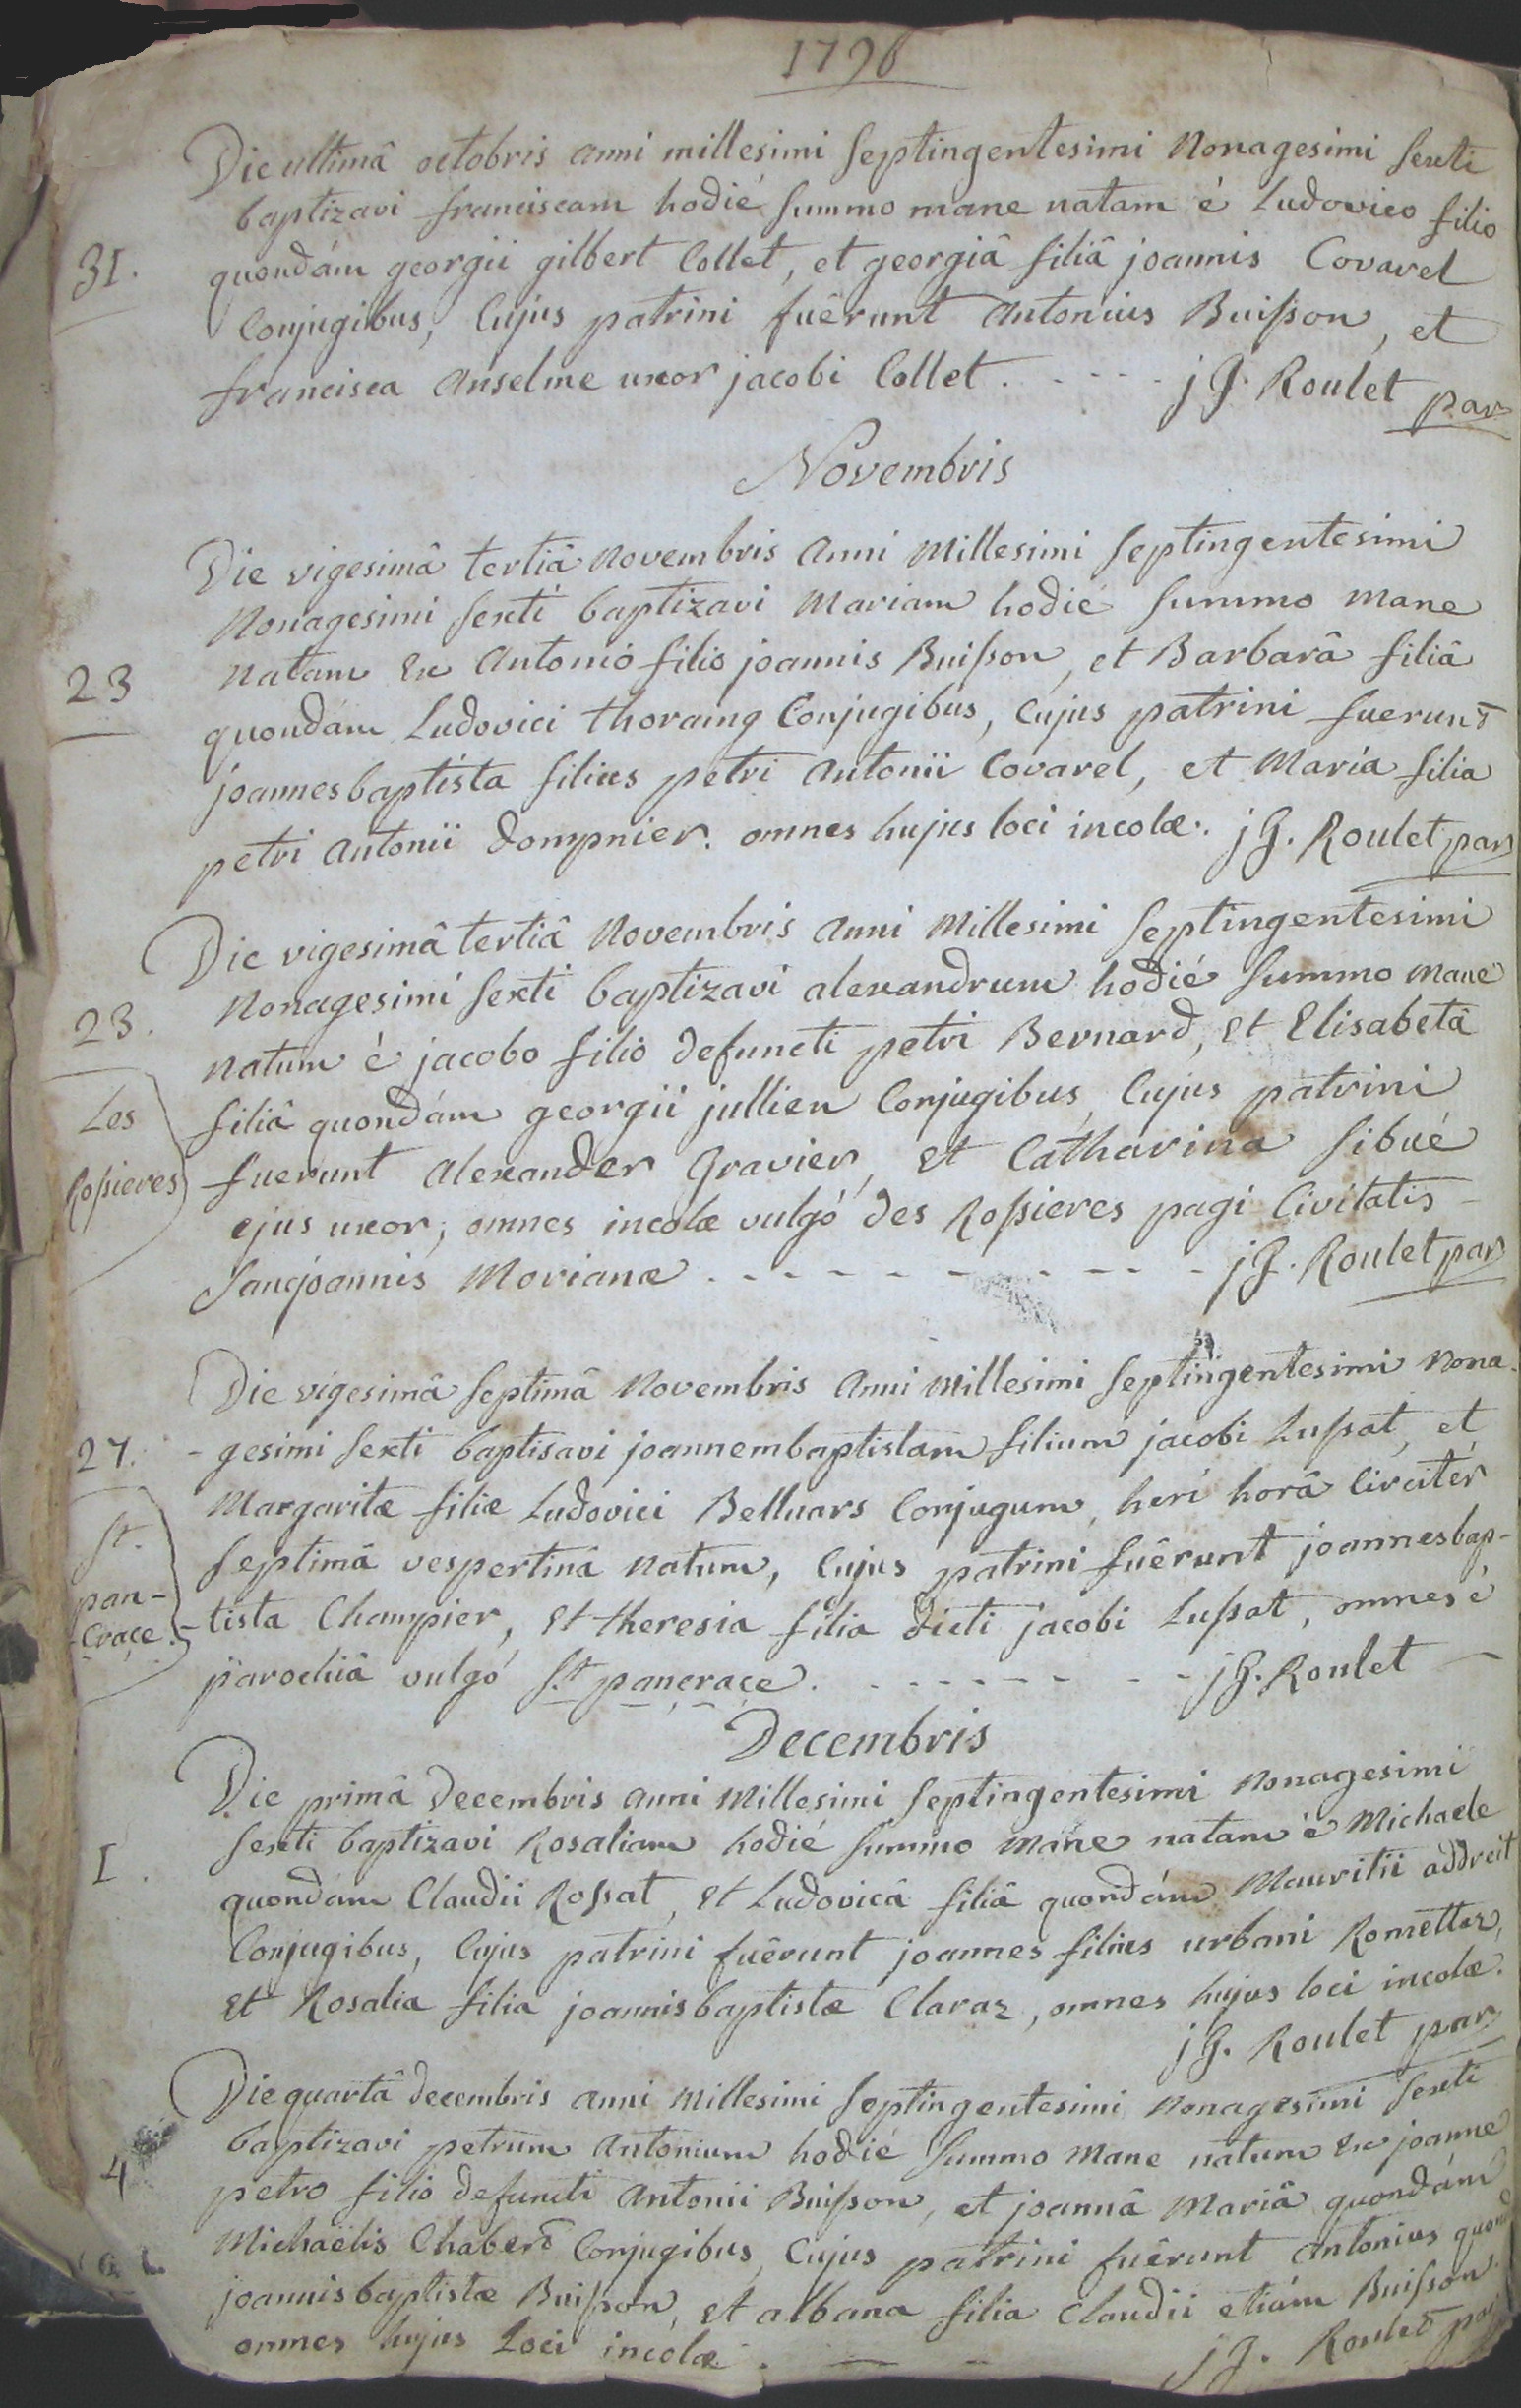 1796
Die ultimâ octobris anni millesimi septingentesimi Nonagesimi sexti
baptizavi franciscam hodié summo mane natam é Ludovico filio
31. quondám georgii gilbert Collet, et georgiâ filiâ joannis Covarel
Conjugibus, Cujus patrini fuêrunt Antonius Buisson, et
francisca Anselme uxor jacobi Collet. - - - - jG. Roulet par
Novembris
Die vigesimâ tertiâ Novembris Anni Millesimi septingentesimi
Nonagesimi sexti baptizavi Mariam hodié summo mane
23 Natam Ex Antonio filio joannis Buisson, et Barbarâ filiâ
quondám Ludovici thoraing Conjugibus, Cujus patrini fuerunt
joannesbaptista filius petri Antonii Covarel, et Maria filia
petri Antonii dompnier. omnes hujus loci incolæ. jG. Roulet par
Die vigesimâ tertiâ Novembris Anni Millesimi septingentesimi
Nonagesimi sexti baptizavi alexandrum hodié summo Mane
23. natum é jacobo filio defuncti petri Bernard, Et Elisabetâ
Les filiâ quondám georgii jullien Conjugibus, Cujus patrini
Rossieres fuerunt Alexander Gravier, Et Catharina sibué
ejus uxor, omnes incolæ vulgó des Rossieres pagi Civitatis
Sancjoannis Morianæ. - - - - - - - - - jG. Roulet par
Die vigesimâ septimâ Novembris Anni Millesimi septingentesimi Nona-
27. -gesimi sexti baptisavi joannembaptistam filium jacobi Lussat, et
Margaritæ filiæ Ludovici Belluars Conjugum, heri horâ Circitér
St. septimâ vespertinâ Natum, Cujus patrini fuêrunt joannesbap-
pan- -tista Champier, Et theresia filia dicti jacobi Lussat, omnes é
-crace. parochiâ vulgó St. pancrace. - - - - - - - jG. Roulet
Decembris
Die primâ Decembris Anni Millesimi septingentesimi Nonagesimi
I. sexti baptizavi Rosaliam hodié summo Mane natam é Michaele
quondám Claudii Rossat, Et Ludovicâ filiâ quondám Mauritii addreit
Conjugibus, Cujus patrini fuêrunt joannes filius urbani Romettaz,
Et Rosalia filia joannisbaptistæ Claraz, omnes hujus loci incolæ.
jG. Roulet par
Die quartâ decembris Anni Millesimi septingentesimi Nonagesimi sexti
4 baptizavi petrum Antonium hodié summo Mane natum Ex joanne
petro filio defuncti Antonii Buisson, et joannâ Mariâ quondám
Michaëlis Chabert Conjugibus, Cujus patrini fuêrunt Antonius quond
joannisbaptistæ Buisson, Et albana filia Claudii etiám Buisson.
omnes hujus Loci incolæ. - - jG. Roulet par